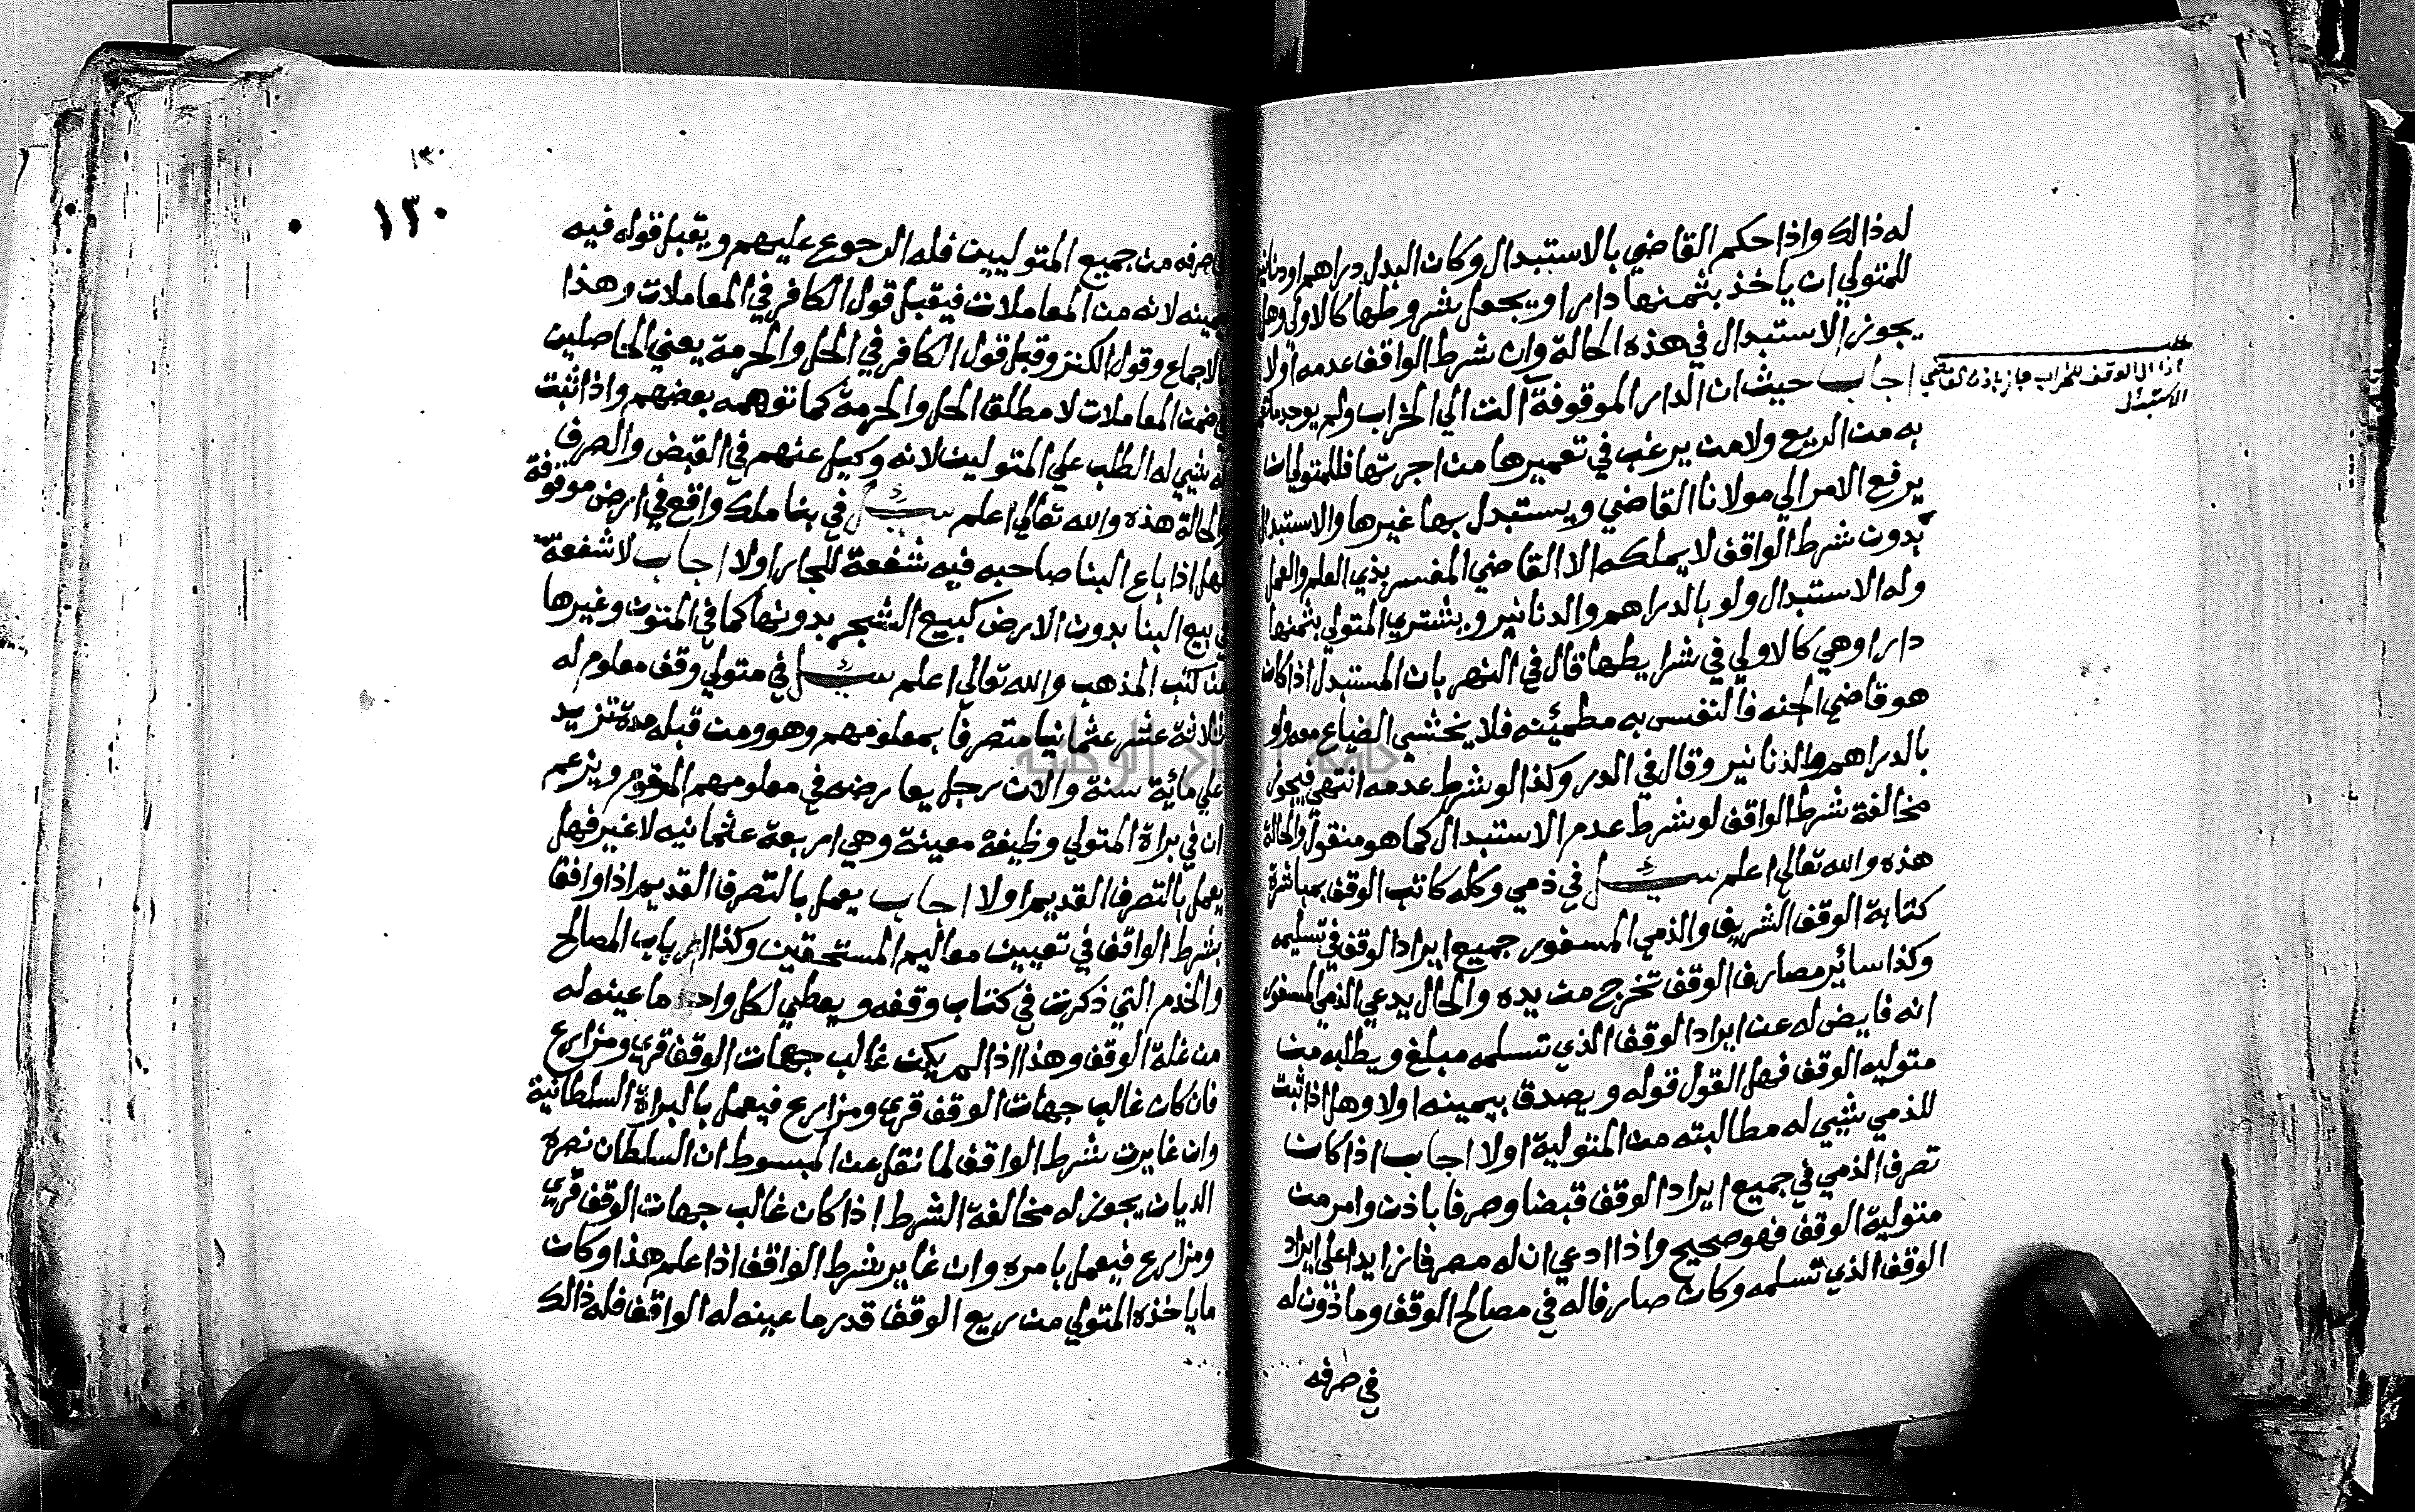 له ذالك واذا حكم القاضي بالاستبدال وكان البدل دراهم او دنانير
للمتولي ان ياخذ بثمنها دارا ويجعل شروطها كالاولي وهل
يجوز الاستبدال في هذه الحالة وان شرط الواقف عدمه اولا
اجاب حيث ان الدار الموقوفة آلت الي الخراب ولم يوجد ما تعمر
به من الريع ولا من يرغب في تعميرها من اجرتها فللمتولي ان
يرفع الامر الي مولانا القاضي ويستبدل بها غيرها والاستبدال
بدون شرط الواقف لا يملكه الا القاضي المفسر بذي العلم والعمل
وله الاستبدال ولو بالدراهم والدنانير ويشتري المتولي بثمنها
دارا وهي كالاولي في شرايطها قال في النهر بان المستبدل اذا كان
هو قاضي الجنه فالنفس به مطمئنه فلا يخشي الضياع معه ولو
بالدراهم والدنانير وقال في الدر وكذا لو شرط عدمه انتهي فيجوز
مخالفة شرط الواقف لو شرط عدم الاستبدال كما هو منقول والحالة
هذه والله تعالي اعلم سئل في ذمي وكله كاتب الوقف بمباشرة
كتابة الوقف الشريف والذمي المسفور جميع ايراد الوقف في تسليمه
وكذا سائر مصارف الوقف تخرج من يده والحال يدعي الذمي المسفور
انه فايض له عن ايراد الوقف الذي تسلمه مبلغ ويطلبه من
متوليه الوقف فهل القول قوله ويصدق بيمينه اولا وهل اذا ثبت
للذمي شيي له مطالبته من المتولية اولا اجاب اذا كان
تصرف الذمي في جميع ايراد الوقف قبضا وصرفا باذن وامر من
متولية الوقف فهو صحيح واذا ادعي ان له مصرفا زايدا علي ايراد
الوقف الذي تسلمه وكان صارفا له في مصالح الوقف وماذون له
في صرفه
اذا ال الوقف للخراب جاز باذن القاضي
الاستبدال
١٣٠
١٣٠
صرفه من جميع المتوليين فله الرجوع عليهم ويقبل قوله فيه
بيمينه لانه من المعاملات فيقبل قول الكافر في المعاملات وهذا
بالاجماع وقول الكنز وقبل قول الكافر في الحل والحرمة يعني الحاصلين
في ضمن المعاملات لا مطلق الحل والحرمة كما توهمه بعضهم واذا ثبت
له شيي له الطلب علي المتولين لانه وكيل عنهم في القبض والصرف
والحالة هذه والله تعالي اعلم سئل في بنا ملك واقع في ارض موقوفة
فهل اذا باع البنا صاحبه فيه شفعة للجار اولا اجاب لا شفعة
في بيع البنا بدون الارض كبيع الشجر بدونها كما في المتون وغيرها
من كتب المذهب والله تعالي اعلم سئل في متولي وقف معلوم له
ثلاثة عشر عثمانيا متصرفا بمعلومهم وهو ومن قبله مدة تزيد
علي مائية سنة والان رجل يعارضه في معلومهم المرقوم ويزعم
ان في براة المتولي وظيفة معينة وهي اربعة عثمانيه لا غير فهل
يعمل بالتصرف القديم اولا اجاب يعمل بالتصرف القديم اذا وافق
بشرط الواقف في تعيين معاليم المستحقين وكذا ارباب المصالح
والخدم التي ذكرت في كتاب وقفه ويعطي لكل واحد ما عينه له
من غلة الوقف وهذا اذا لم يكن غالب جهات الوقف قري ومزارع
فان كان غالب جهات الوقف قري ومزارع فيعمل بالبراة السلطانية
وان غايرت شرط الواقف لما نقل عن المبسوط ان السلطان نصره
الديان يجوز له مخالفة الشرط اذا كان غالب جهات الوقف قري
ومزارع فيعمل بامره وان غاير شرط الواقف اذا علم هذا وكان
ما ياخذه المتولي من ريع الوقف قدر ما عينه له الواقف فله ذالك